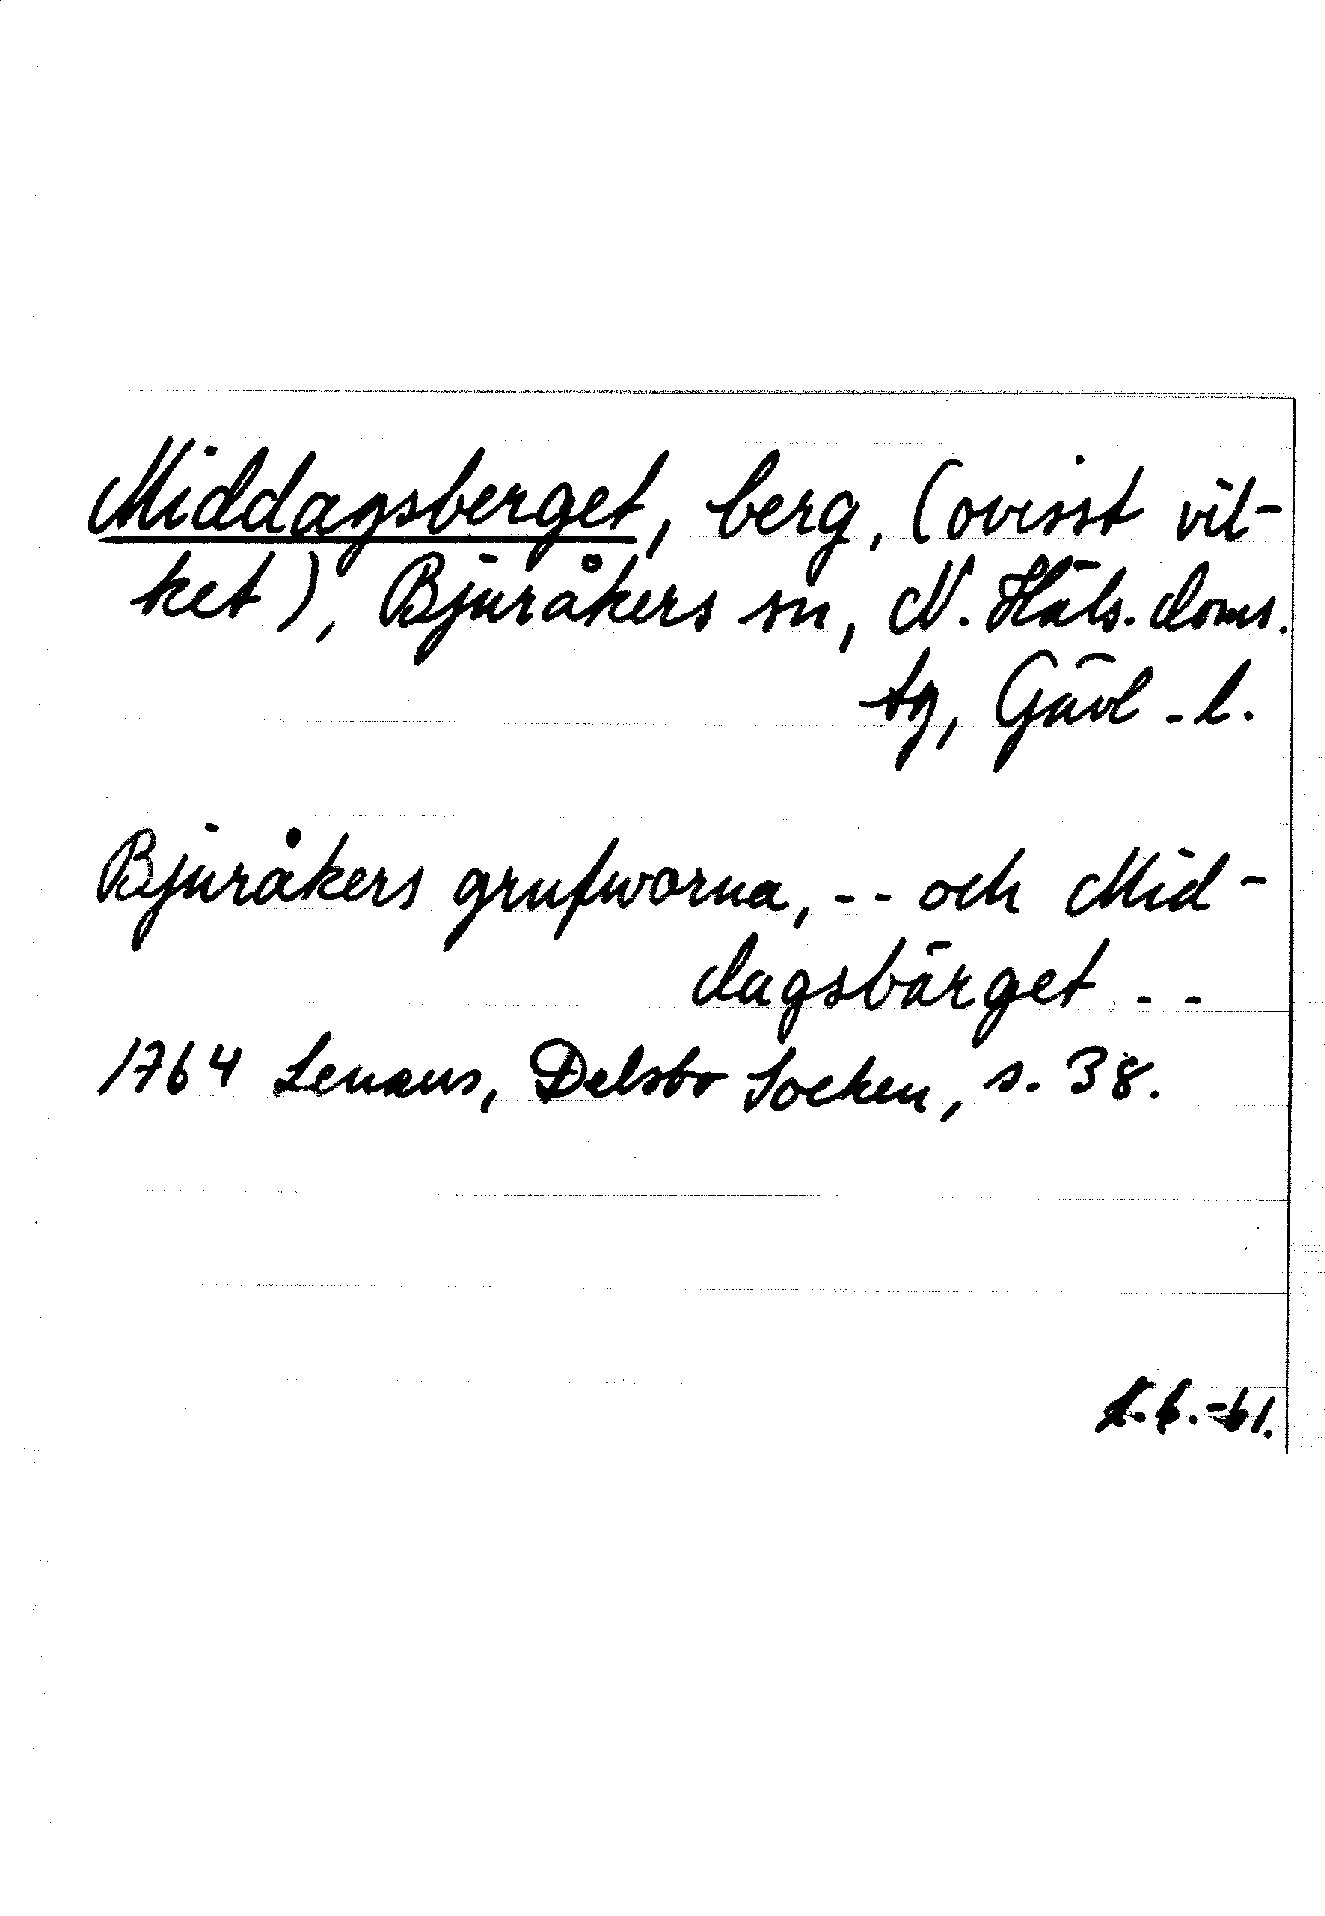 Middagsberget, berg, (ovisst vil-
ket), Bjuråkers sn, N. Häls. doms.
tg, Gävl. l.
Bjuråkers grufworna, -- och Mid-
dagsbärget --
1764 Lenæus, Delsbo Socken, s. 38.
-61.